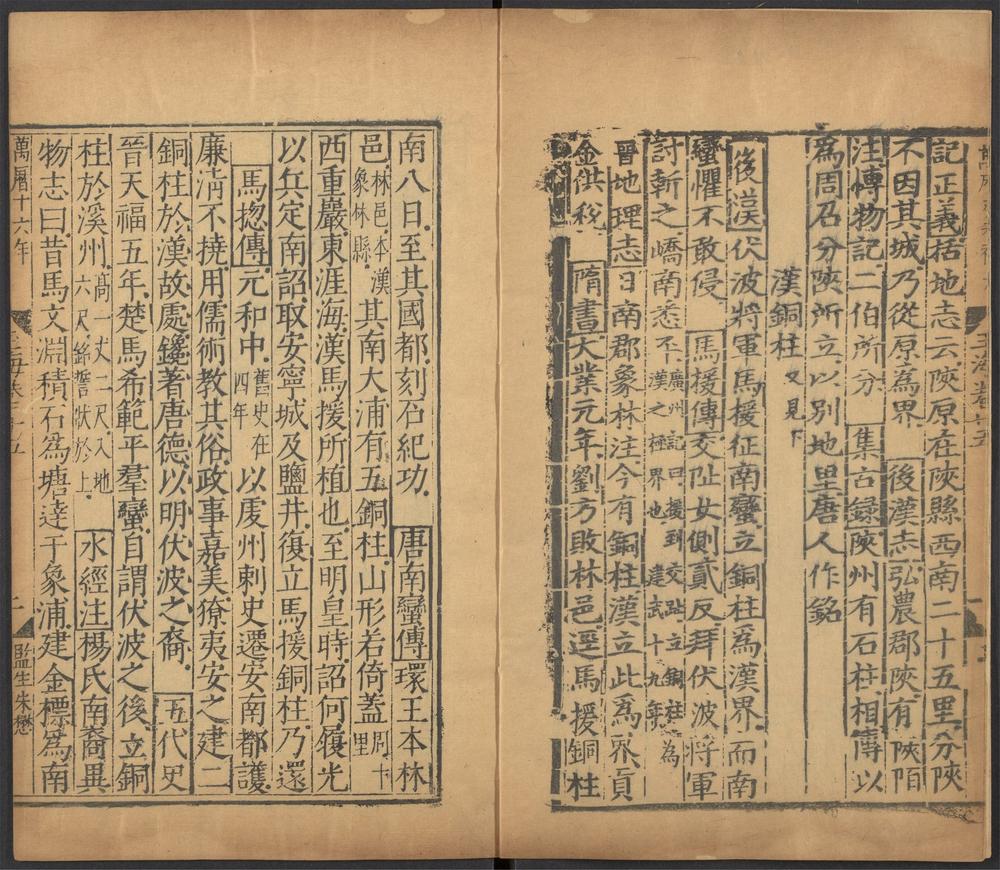 記正義括地志云陝原在陝縣西南二十五里分陝
不因其城乃從原為界 後漢志弘農郡陝有陝陌
注博物記二伯所分 集古録陝州有石柱相傳以
為周召分陝所立以別地里唐人作銘
漢銅柱又見下
後漢伏波將軍馬援征南蠻立銅柱爲漢界而南
蠻懼不敢侵 馬援傳交阯女側貳反拜伏波將軍
討斬之嶠南悉平廣州記曰援到交阯立銅柱為漢之極界也建武十九年
晉地理志日南郡象林注今有銅柱漢立此為界貢
金供稅 隋書大業元年劉方敗林邑逕馬援銅柱
南八日至其國都刻石紀功 唐南蠻傳環王本林
邑林邑本漢象林縣其南大浦有五銅柱山形若倚蓋
西重巖東涯海漢馬援所植也至明皇時詔何履光
以兵定南詔取安寧城及鹽井復立馬援銅柱乃還
馬揔傳元和中舊史在四年以虔州刺史遷安南都護
廉淸不撓用儒術教其俗政事嘉美獠夷安之建二
銅柱於漢故處鑱著唐德以明伏波之裔 五代史
晉天福五年楚馬希範平羣蠻自謂伏波之後立銅
柱於溪州高一丈二尺入地六尺銘誓狀於上 水經注楊氏南裔異
物志曰昔馬文淵積石爲塘達于象浦建金標爲南
萬曆十六年
二
監生朱懋